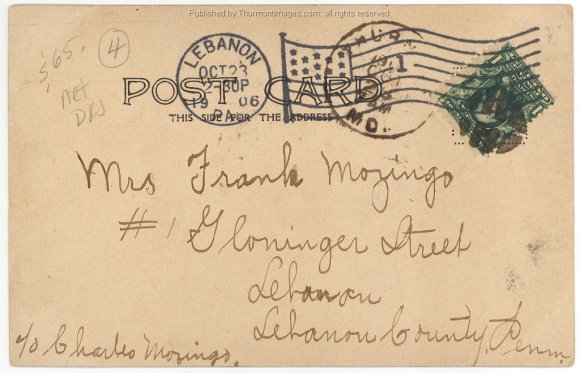 Published by Thurmontimages.com, all rights reserved
365.
4
net
LEBANON
OCT 23
2-30P
19 06
PA.
MD.
POST CARD
THIS SIDE FOR THE ADDRESS
Mrs Frank Mozingo
#1 Gloninger Street
Lebanon
Lebanon County, Penn.
c/o Charles Mozingo.